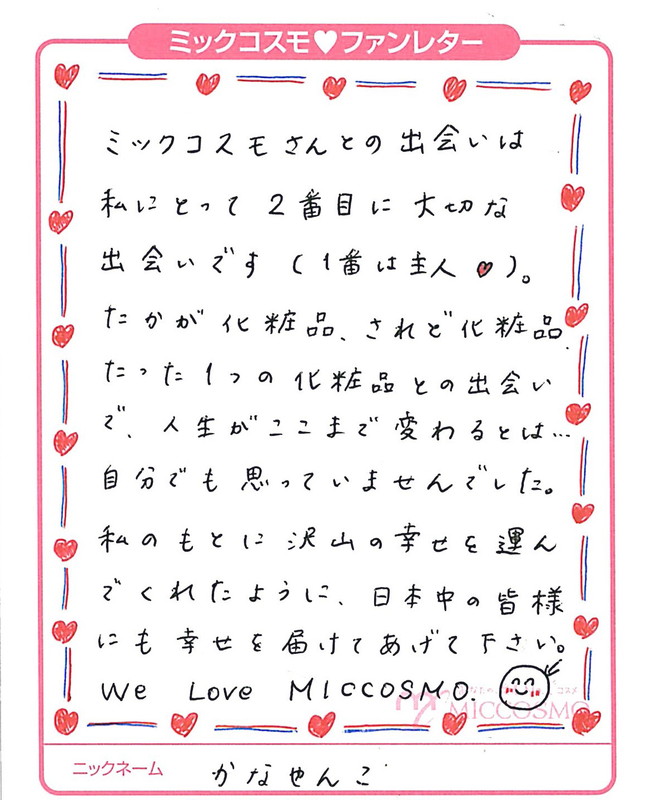 ミックコスモ♥ファンレター
ミックコスモさんとの出会いは
私にとって2番目に大切な
出会いです（1番は主人♥）。
たかが化粧品、されど化粧品、
たった1つの化粧品との出会い
で、人生がここまで変わるとは…
自分でも思っていませんでした。
私のもとに沢山の幸せを運ん
でくれたように、日本中の皆様
にも幸せを届けてあげて下さい。
We Love MICCOSMO.
MICCOSMO
ニックネーム かなやんこ